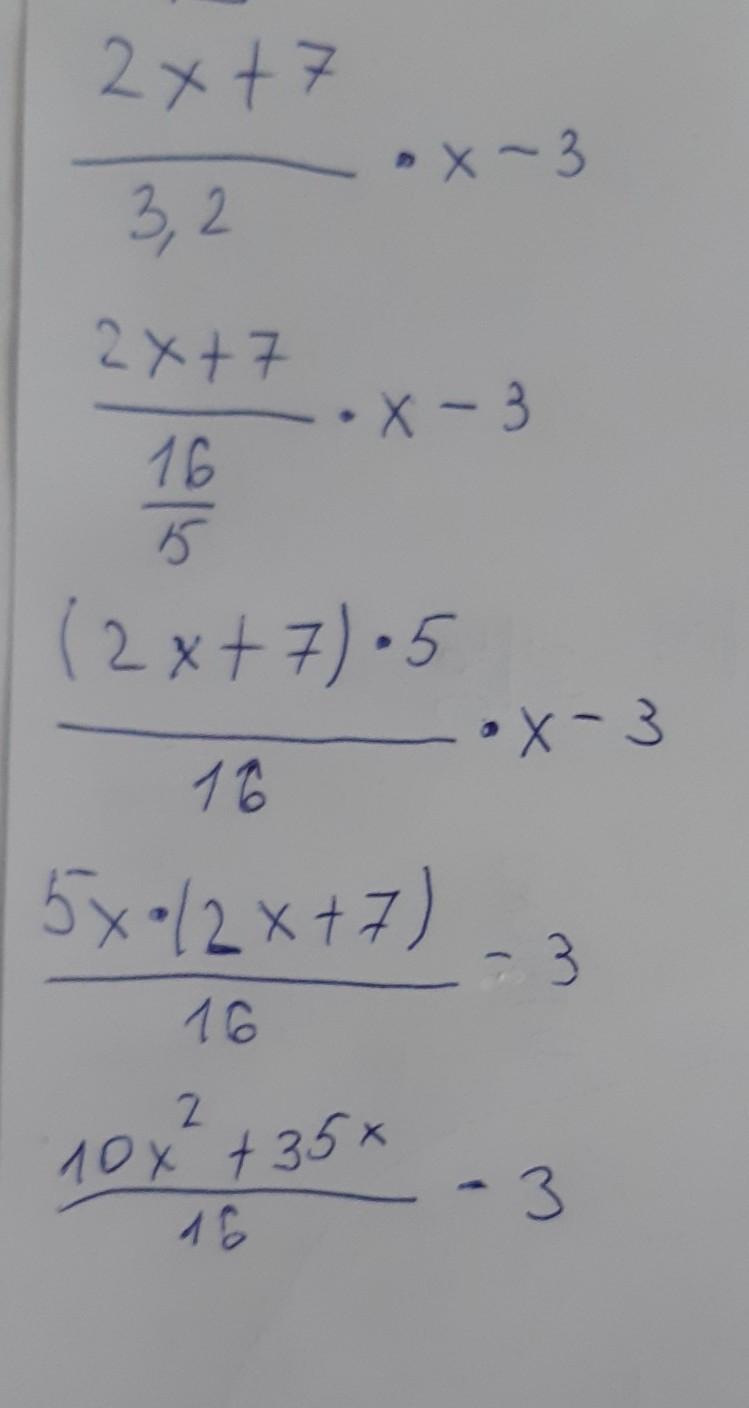 2x+7
3,2
· x - 3
2x+7
16
5
· x - 3
(2x+7) · 5
16
· x - 3
5x·(2x+7)
16
- 3
10x² + 35x
16
- 3